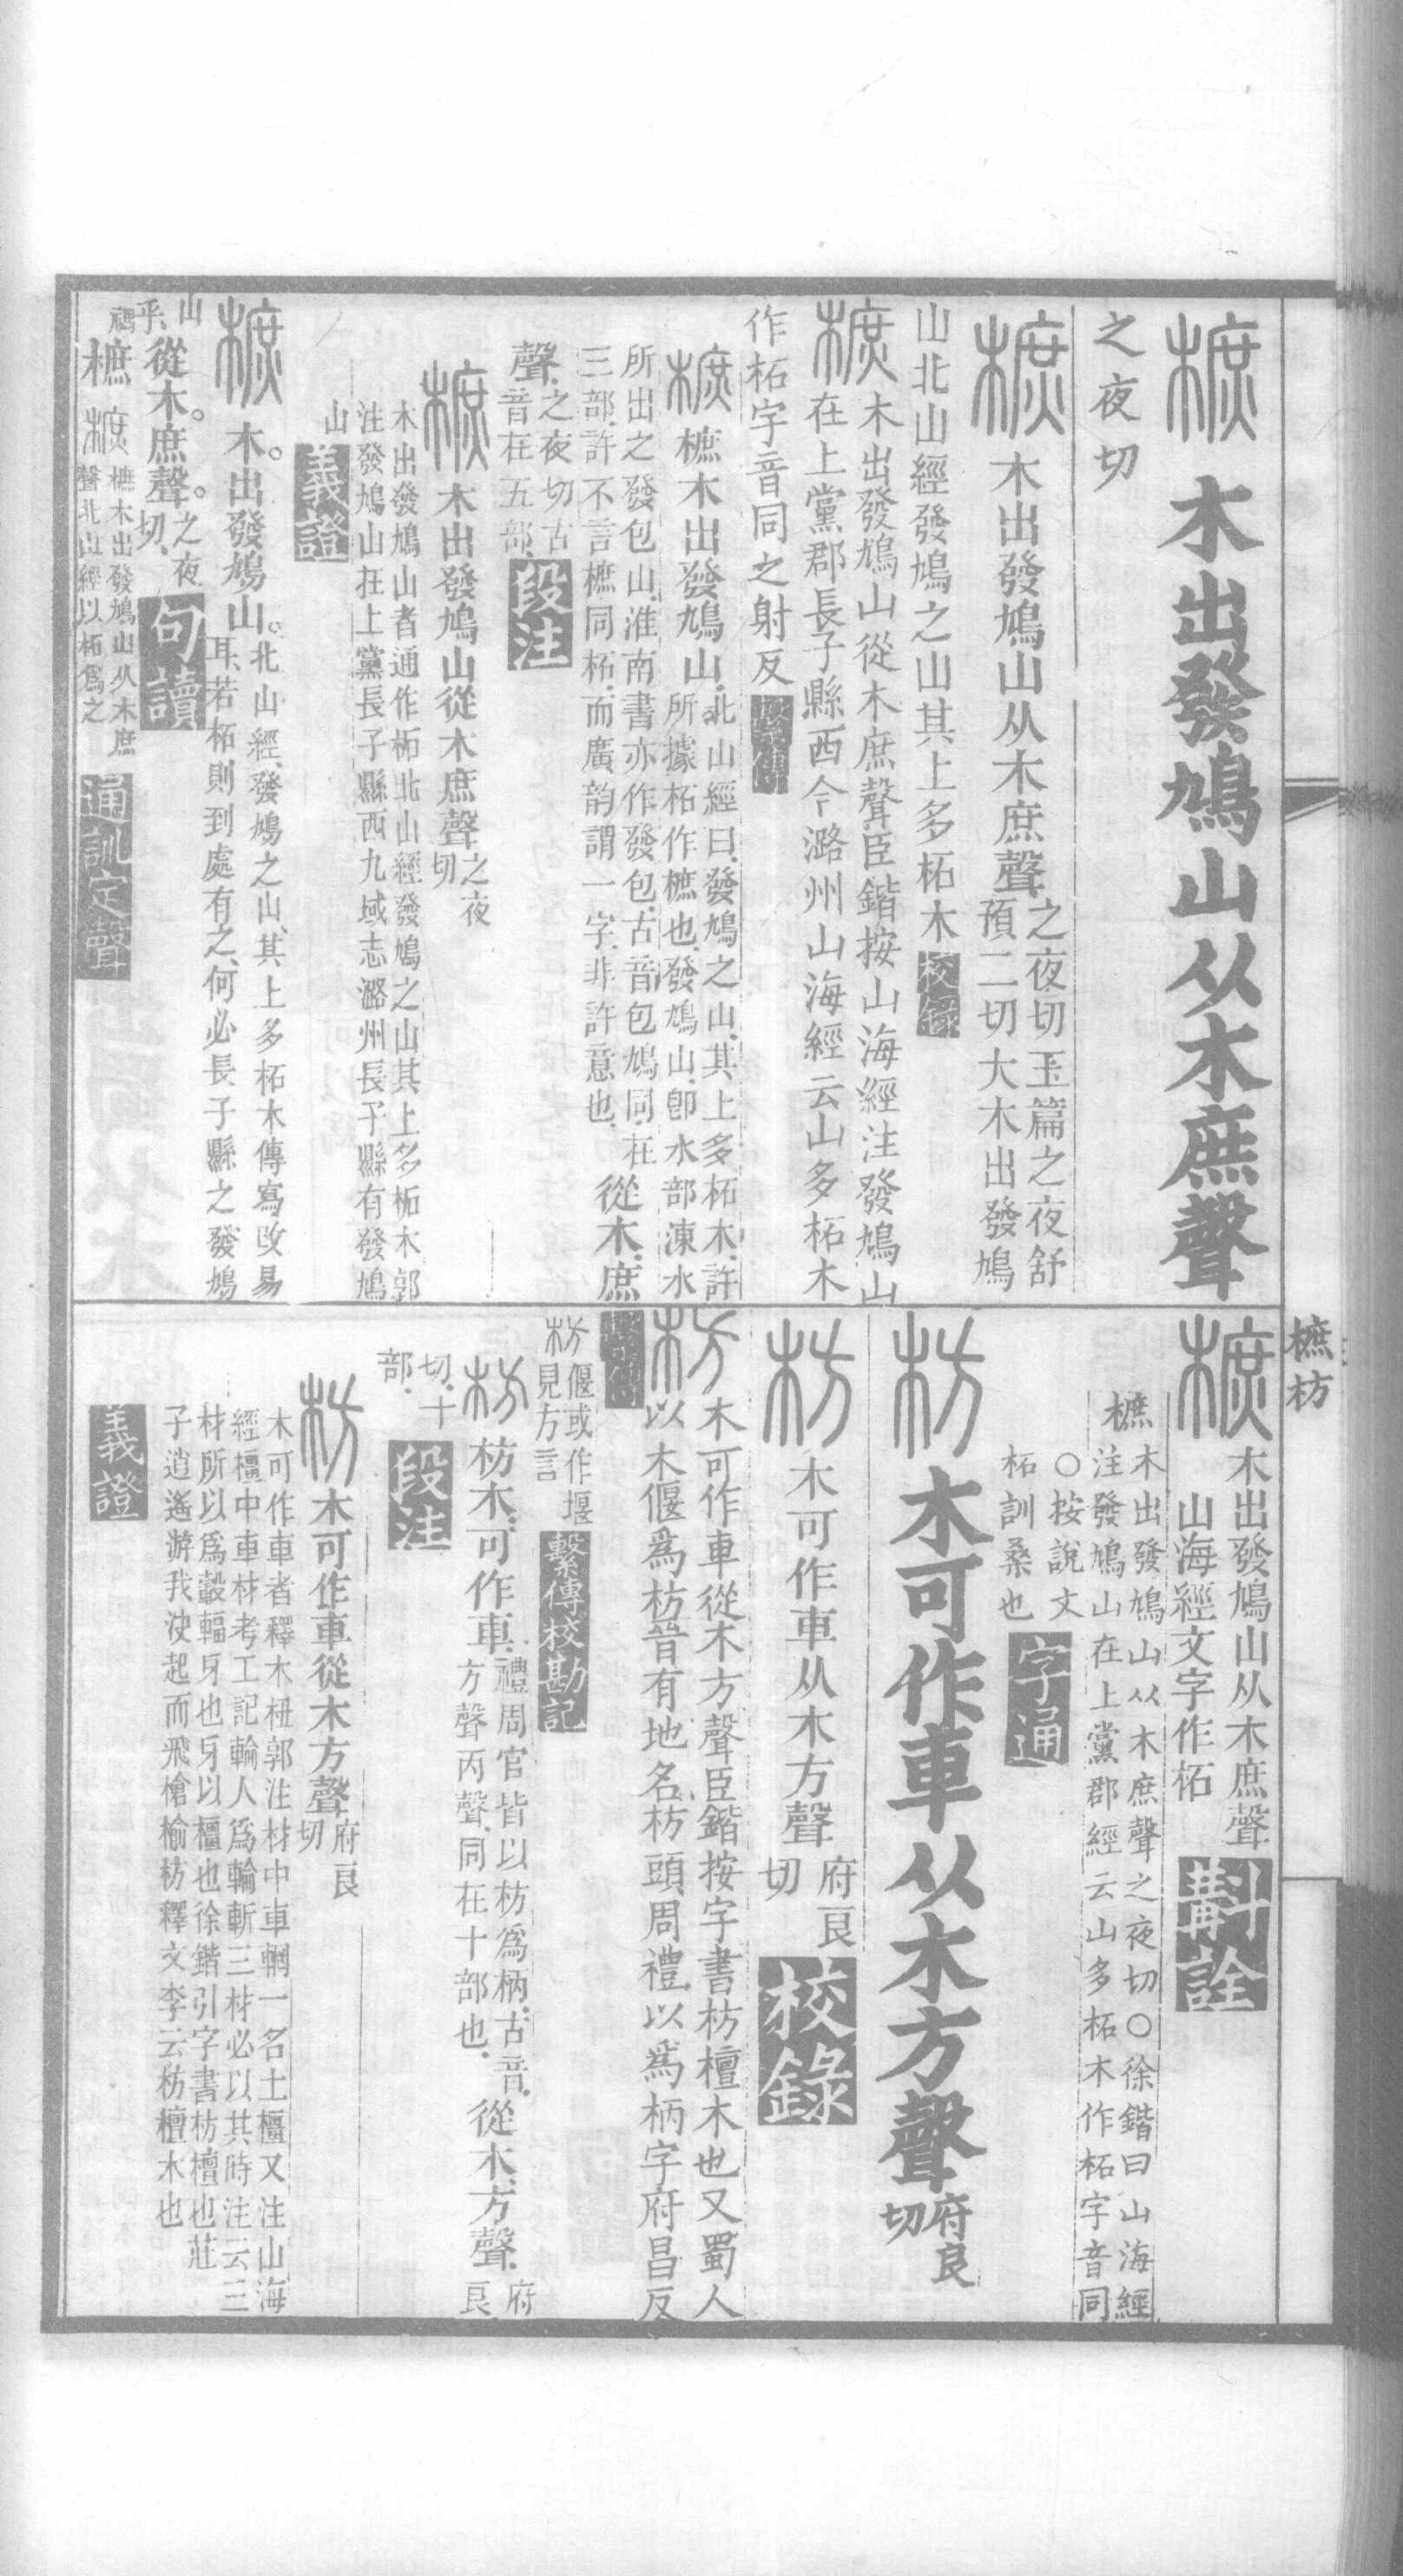 樜 木出發鳩山从木庶聲
之夜切
樜 木出發鳩山从木庶聲之夜切玉篇之夜舒
預二切大木出發鳩
山北山經發鳩之山其上多柘木 校錄
樜 木出發鳩山從木庶聲臣鍇按山海經注發鳩山
在上黨郡長子縣西今潞州山海經云山多柘木
作柘字音同之射反 繫傳
樜 樜木出發鳩山.北山經曰.發鳩之山.其上多柘木.許
所據柘作樜也.發鳩山.卽水部涷水
所出之發包山.淮南書亦作發包.古音包鳩同.在
三部.許不言樜同柘.而廣韵謂一字.非許意也.從木.庶
聲.之夜切古
音在五部. 段注
樜 木出發鳩山從木庶聲之夜
切
木出發鳩山者通作柘北山經發鳩之山其上多柘木郭
注發鳩山在上黨長子縣西九域志潞州長子縣有發鳩
山 義證
樜 木。出發鳩山。北山經、發鳩之山、其上多柘木傳寫改易
耳、若柘則到處有之、何必長子縣之發鳩
山
乎、從木。庶聲。之夜
切、 句讀
樜 樜 樜木出發鳩山从木庶
聲北山經以柘爲之 通訓定聲
樜枋
樜 木出發鳩山从木庶聲
山海經文字作柘 斠詮
樜 木出發鳩山从木庶聲之夜切○徐鍇曰山海經
注發鳩山在上黨郡經云山多柘木作柘字音同
○按說文
柘訓桑也 字通
枋 木可作車从木方聲府良
切
枋 木可作車从木方聲府良
切 校錄
枋 木可作車從木方聲臣鍇按字書枋檀木也又蜀人
以木偃爲枋晉有地名枋頭周禮以爲柄字府昌反
繫傳
枋 偃或作堰
見方言 繫傳校勘記
枋 枋木.可作車.禮周官皆以枋爲柄.古音.
方聲丙聲.同在十部也.從木.方聲.府
良
切.十
部. 段注
枋 木可作車從木方聲府良
切
木可作車者釋木杻郭注材中車輞一名土橿又注山海
經橿中車材考工記輪人爲輪斬三材必以其時注云三
材所以爲轂輻牙也牙以橿也徐鍇引字書枋檀也莊
子逍遙游我決起而飛槍榆枋釋文李云枋檀木也
義證